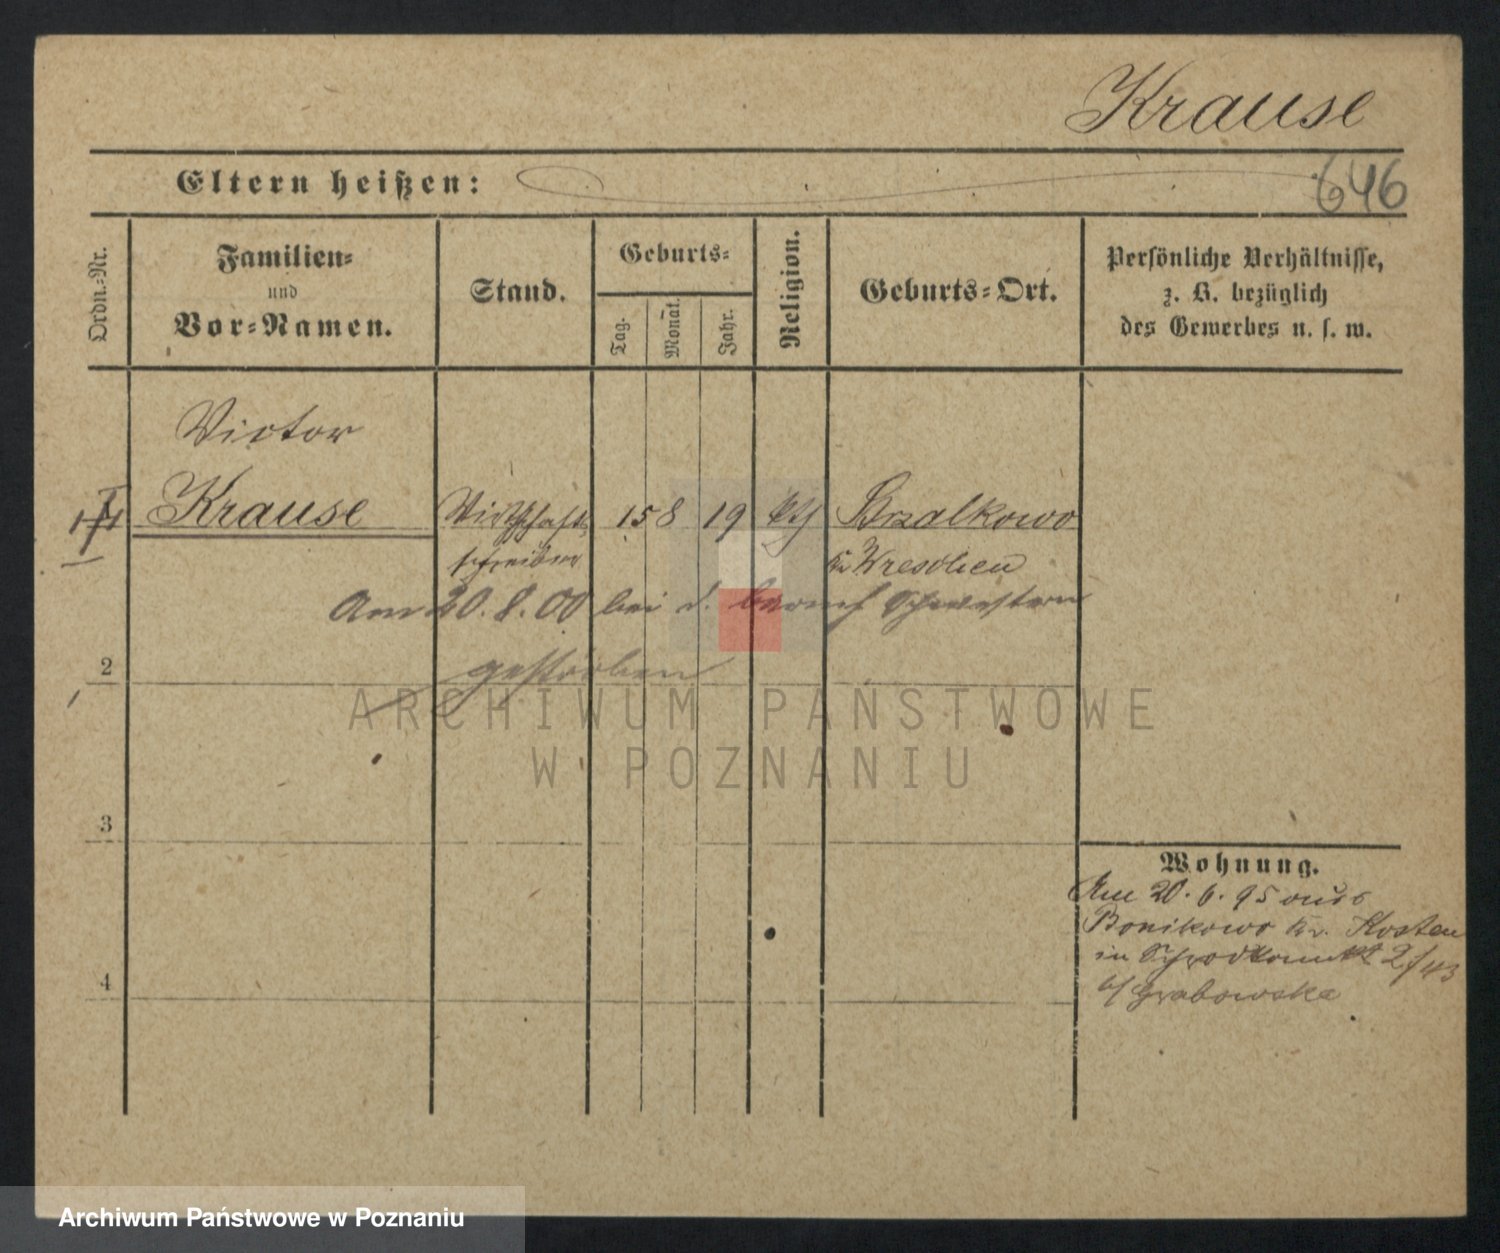 Krause
Eltern heißen:
646
Ordn.-Nr.
Familien-
und
Vor-Namen.
Stand.
Geburts-
Tag.
Monat.
Jahr.
Religion.
Geburts-Ort.
Persönliche Verhältnisse,
z. B. bezüglich
des Gewerbes u. s. w.
Victor
Krause
Wirthschafts
schreiber
15 8 19 kth
Brzalkowo
Kr Wreschen
Am 20. 8. 00 bei d. barmh Schwestern
gestorben
2
3
4
Wohnung.
Am 20. 6. 95 aus
Bonikowo Kr. Kosten
in 2/43
b/ Grabowska
ARCHIWUM PAŃSTWOWE
W POZNANIU
Archiwum Państwowe w Poznaniu